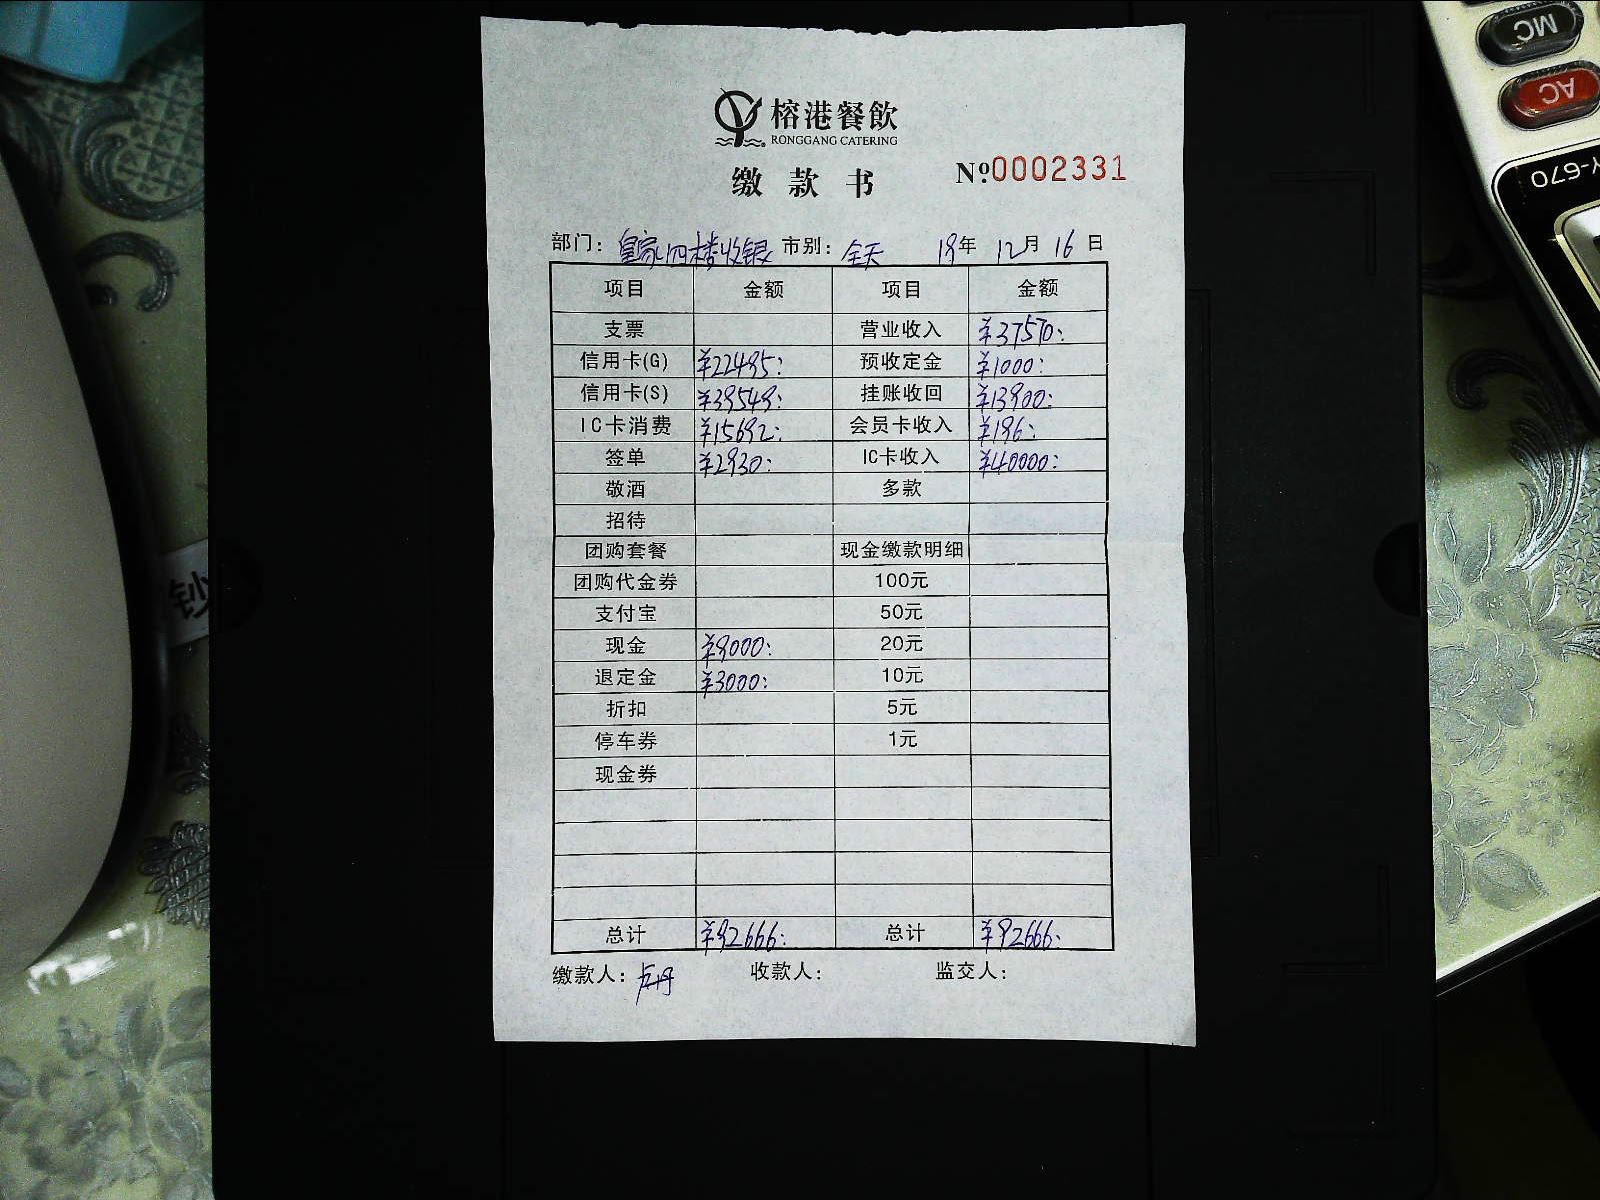 榕港餐飲
RONGGANG CATERING
缴款书
№0002331
部门: 皇家四楼收银 市别: 全天 19年 12月 16日
项目 金额 项目 金额
支票 营业收入 ¥37570:
信用卡(G) ¥22495: 预收定金 ¥1000:
信用卡(S) ¥39549: 挂账收回 ¥13900:
IC卡消费 ¥15692: 会员卡收入 ¥196:
签单 ¥2930: IC卡收入 ¥40000:
敬酒 多款
招待
团购套餐 现金缴款明细
团购代金券 100元
支付宝 50元
现金 ¥9000: 20元
退定金 ¥3000: 10元
折扣 5元
停车券 1元
现金券
总计 ¥92666: 总计 ¥92666:
缴款人: 卢丹 收款人: 监交人:
MC
AC
Y-670
钞